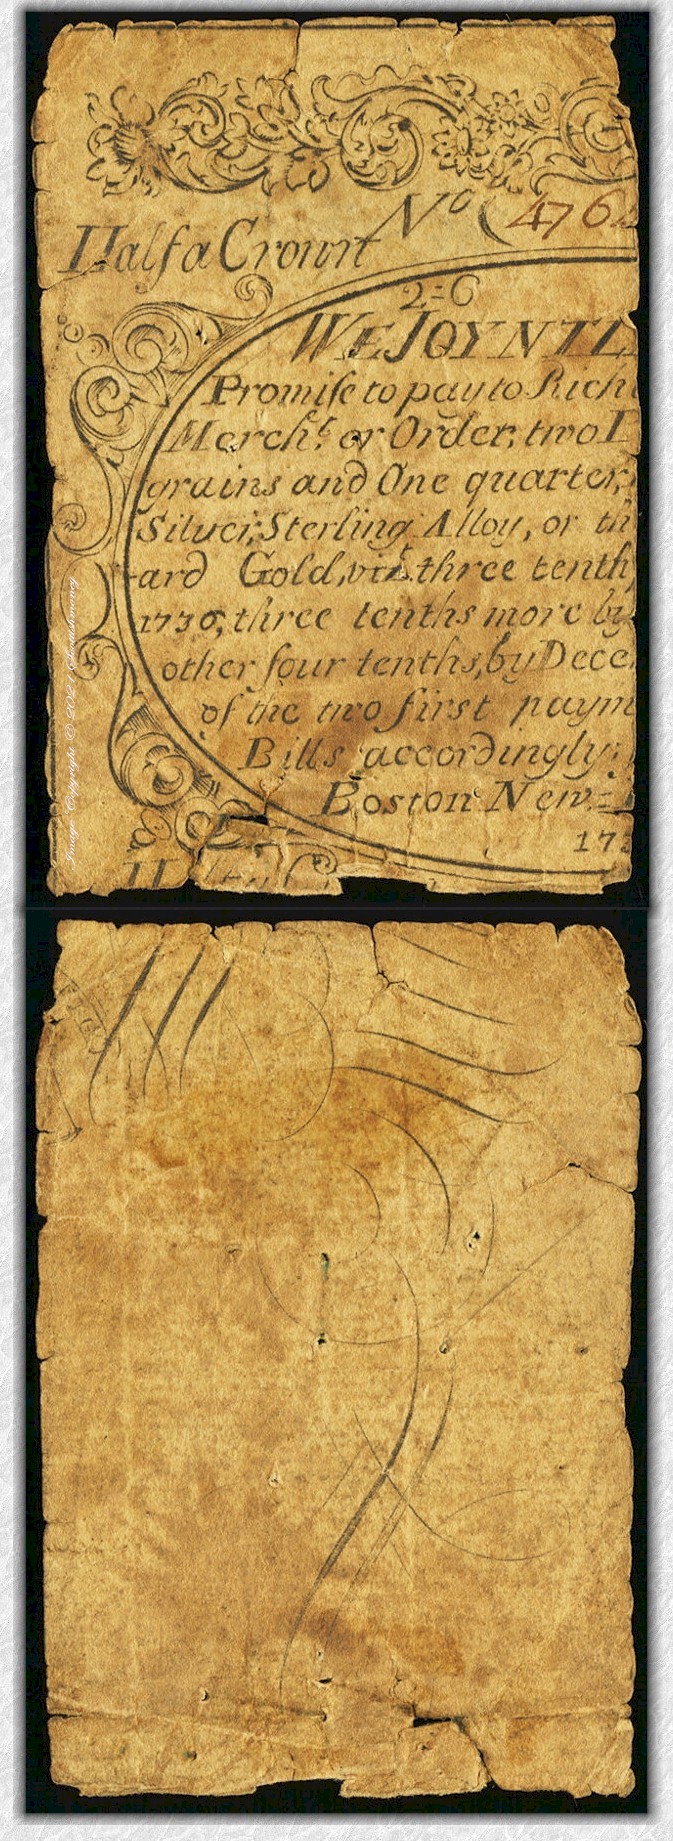 Nº (4764
Half a Crown
2=6
WE JOYNTL
Promiſe to pay to Rich
Mercht. or Order, two
grains and One quarter,
Silver, Sterling Alloy, or th
ard Gold, vizt. three tenth
1736, three tenths more by
other four tenths, by Dece
of the two first paym
Bills accordingly:
Boston New=
173
Image Copyright © 2021